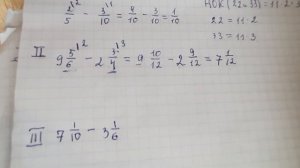 2/5 - 3/10 = 4/10 - 3/10 = 1/10
НОК (22 и 33) = 11 · 2 ·
22 = 11 · 2
33 = 11 · 3
II
9 5/6 - 2 3/4 = 9 10/12 - 2 9/12 = 7 1/12
III 7 1/10 - 3 1/6